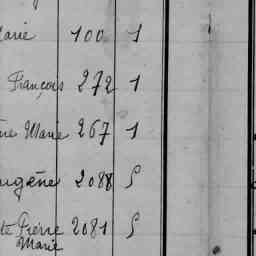 Marie 100 1
François 272 1
ne Marie 267 1
ugène 2088 5
te Pierre 2081 5
Marie